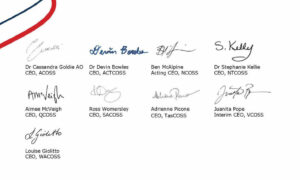 Devin Bowles
S. Kelly
Dr Cassandra Goldie AO
CEO, ACOSS
Dr Devin Bowles
CEO, ACTCOSS
Ben McAlpine
Acting CEO, NCOSS
Dr Stephanie Kelly
CEO, NTCOSS
AMcVeigh
Aimee McVeigh
CEO, QCOSS
Ross Womersley
CEO, SACOSS
Adrienne Picone
CEO, TasCOSS
Juanita Pope
Interim CEO, VCOSS
L Giolitto
Louise Giolitto
CEO, WACOSS